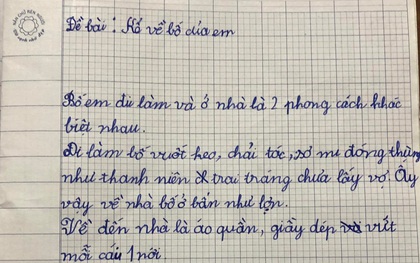 Đề bài: Kể về bố của em
Bố em đi làm và ở nhà là 2 phong cách khác
biệt nhau.
Đi làm bố vuốt keo, chải tóc, sơ mi đóng thùng
như thanh niên trai tráng chưa lấy vợ. Ấy
vậy về nhà bố ở bẩn như lợn.
Về đến nhà là áo quần, giầy dép vứt
mỗi cái 1 nơi.